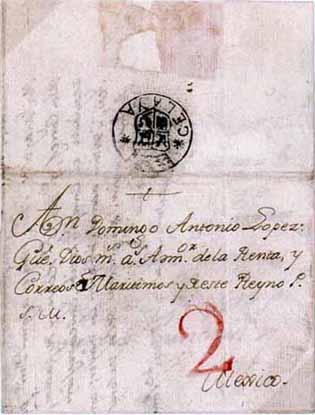 CELAYA
A Dn Domingo Antonio Lopez.
Gue. Dios ms. as. Amor. de la Renta, y
Correos Maritimos y Reste Reyno P.
S. M.
2
Mexico.